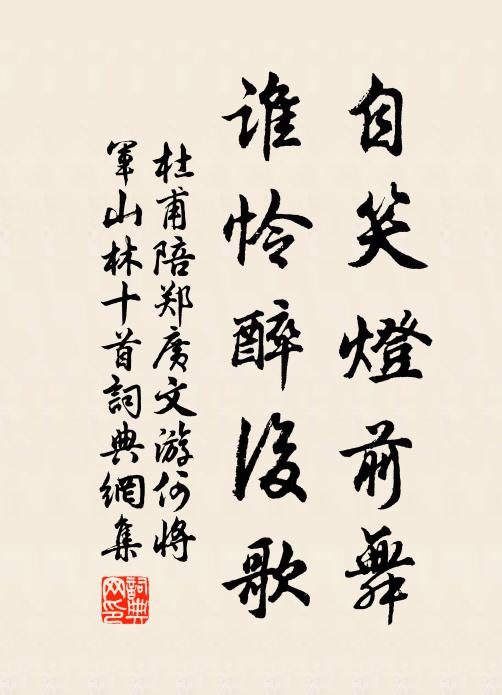 自笑燈前舞
誰怜醉後歌
杜甫陪郑廣文游何將
軍山林十首詞典網集
詞典网印